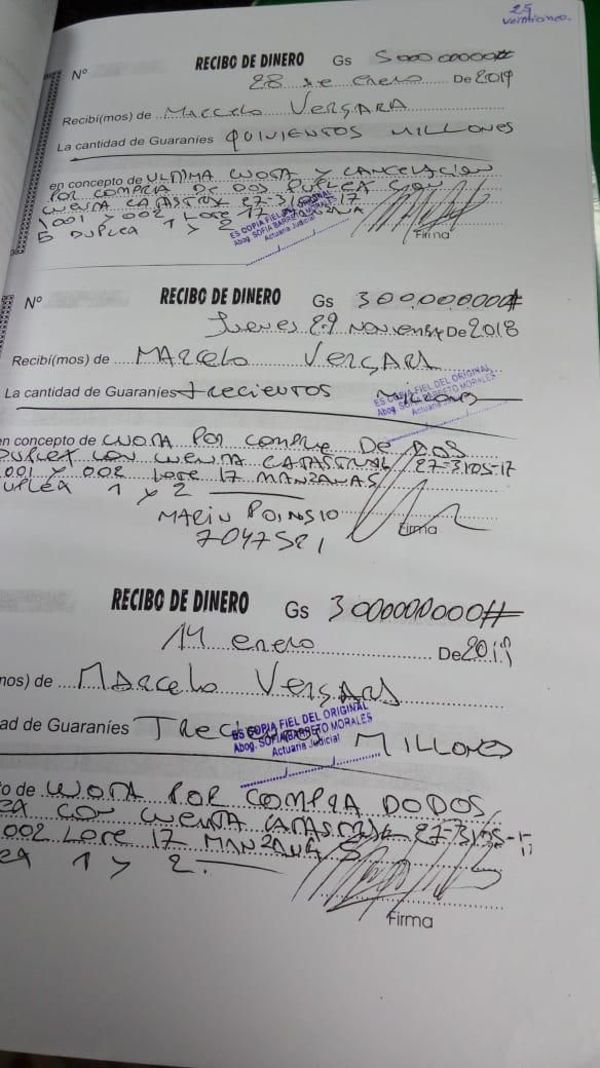 25
veinticinco.
Nº RECIBO DE DINERO Gs 500000000#
28 de enero De 2019
Recibí(mos) de Marcelo VERGARA
La cantidad de Guaraníes QUINIENTOS MILLONES
en concepto de ULTIMA CUOTA Y CANCELACION
POR COMPRA DE DOS DUPLEX CON
CUENTA CATASTRAL 27-3105-17
1001 y 002 LOTE 17 MANZANA
5 DUPLEX 1 y 2
ES COPIA FIEL DEL ORIGINAL
Abog. SOFIA BARRETO MORALES
Actuaria Judicial
Firma
Nº RECIBO DE DINERO Gs 300.000.000#
Jueves 29 NOVIEMBRE De 2018
Recibí(mos) de MARCELO VERGARA
La cantidad de Guaraníes trecientos MILLONES
ES COPIA FIEL DEL ORIGINAL
Abog. SOFIA BARRETO MORALES
Actuaria Judicial
en concepto de CUOTA POR COMPRA DE DOS
DUPLEX CON CUENTA CATASTRAL 27-3105-17
001 Y 002 LOTE 17 MANZANAS
DUPLEX 1 y 2
MARIN
Firma
RECIBO DE DINERO Gs 300000000#
14 enero De
nos) de MARCELO VERGARA
ad de Guaraníes Trecientos MILLONES
ES COPIA FIEL DEL ORIGINAL
Abog. SOFIA BARRETO MORALES
Actuaria Judicial
to de CUOTA POR COMPRA DODOS
EX CON CUENTA CATASTRAL 27-3105-17
002 LOTE 17 MANZANA 5
EX 1 y 2.
Firma